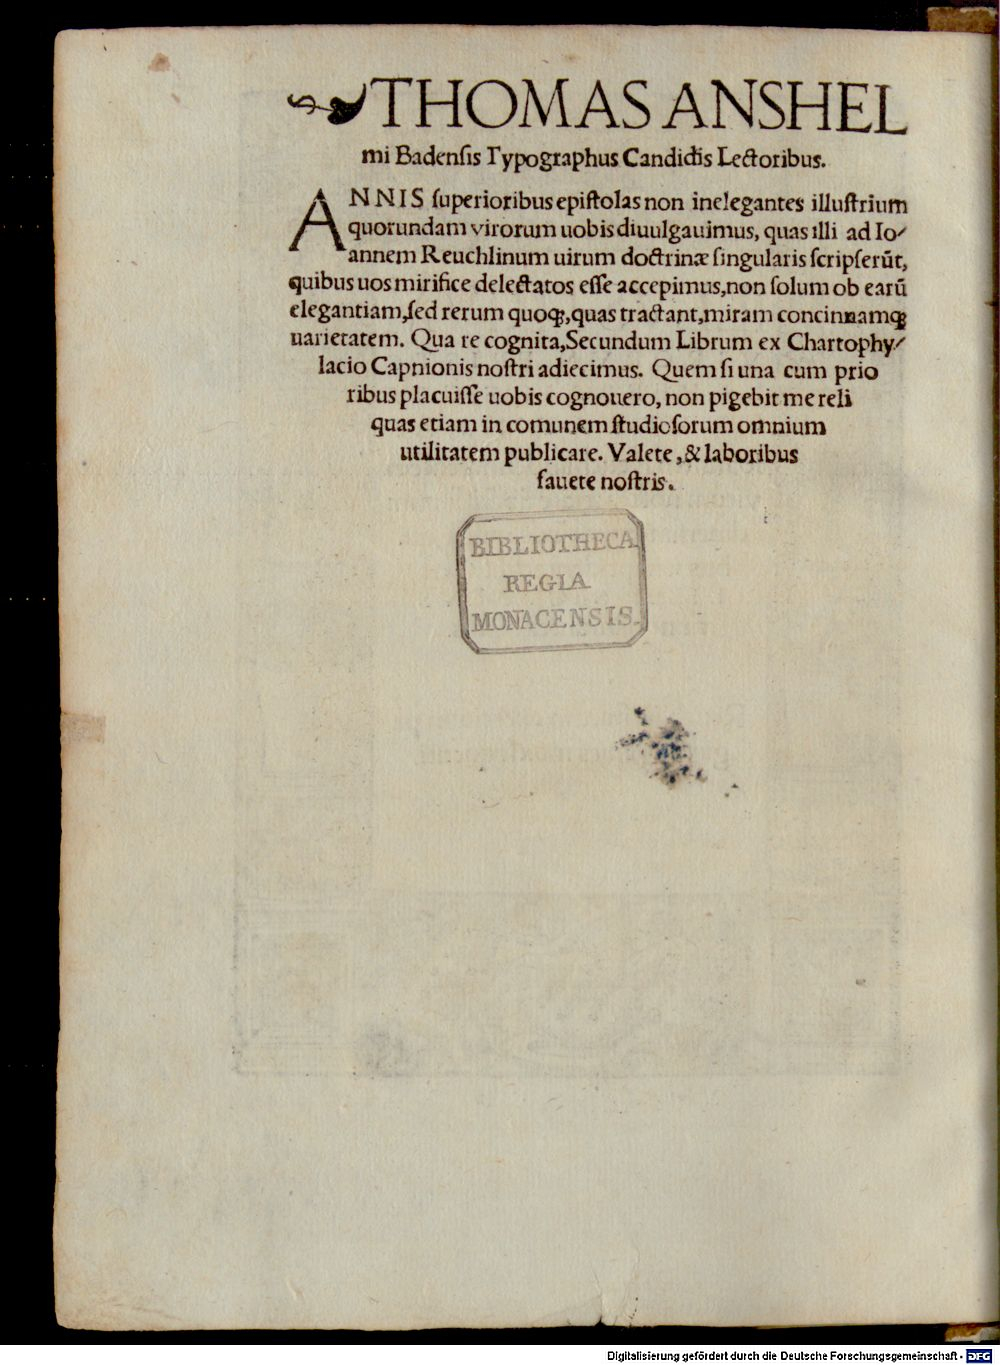 ❧THOMAS ANSHEL
mi Badensis Typographus Candidis Lectoribus.
ANNIS ſuperioribus epiſtolas non inelegantes illuſtrium
quorundam virorum uobis diuulgauimus, quas illi ad Io⸗
annem Reuchlinum uirum doctrinæ ſingularis ſcripſerūt,
quibus uos mirifice delectatos eſſe accepimus, non ſolum ob earū
elegantiam, ſed rerum quoqꝫ, quas tractant, miram concinnamqꝫ
uarietatem. Qua re cognita, Secundum Librum ex Chartophy⸗
lacio Capnionis noſtri adiecimus. Quem ſi una cum prio
ribus placuiſſe uobis cognouero, non pigebit me reli
quas etiam in comunem ſtudioſorum omnium
utilitatem publicare. Valete, & laboribus
fauete noſtris.
BIBLIOTHECA
REGIA
MONACENSIS.
Digitalisierung gefördert durch die Deutsche Forschungsgemeinschaft - DFG